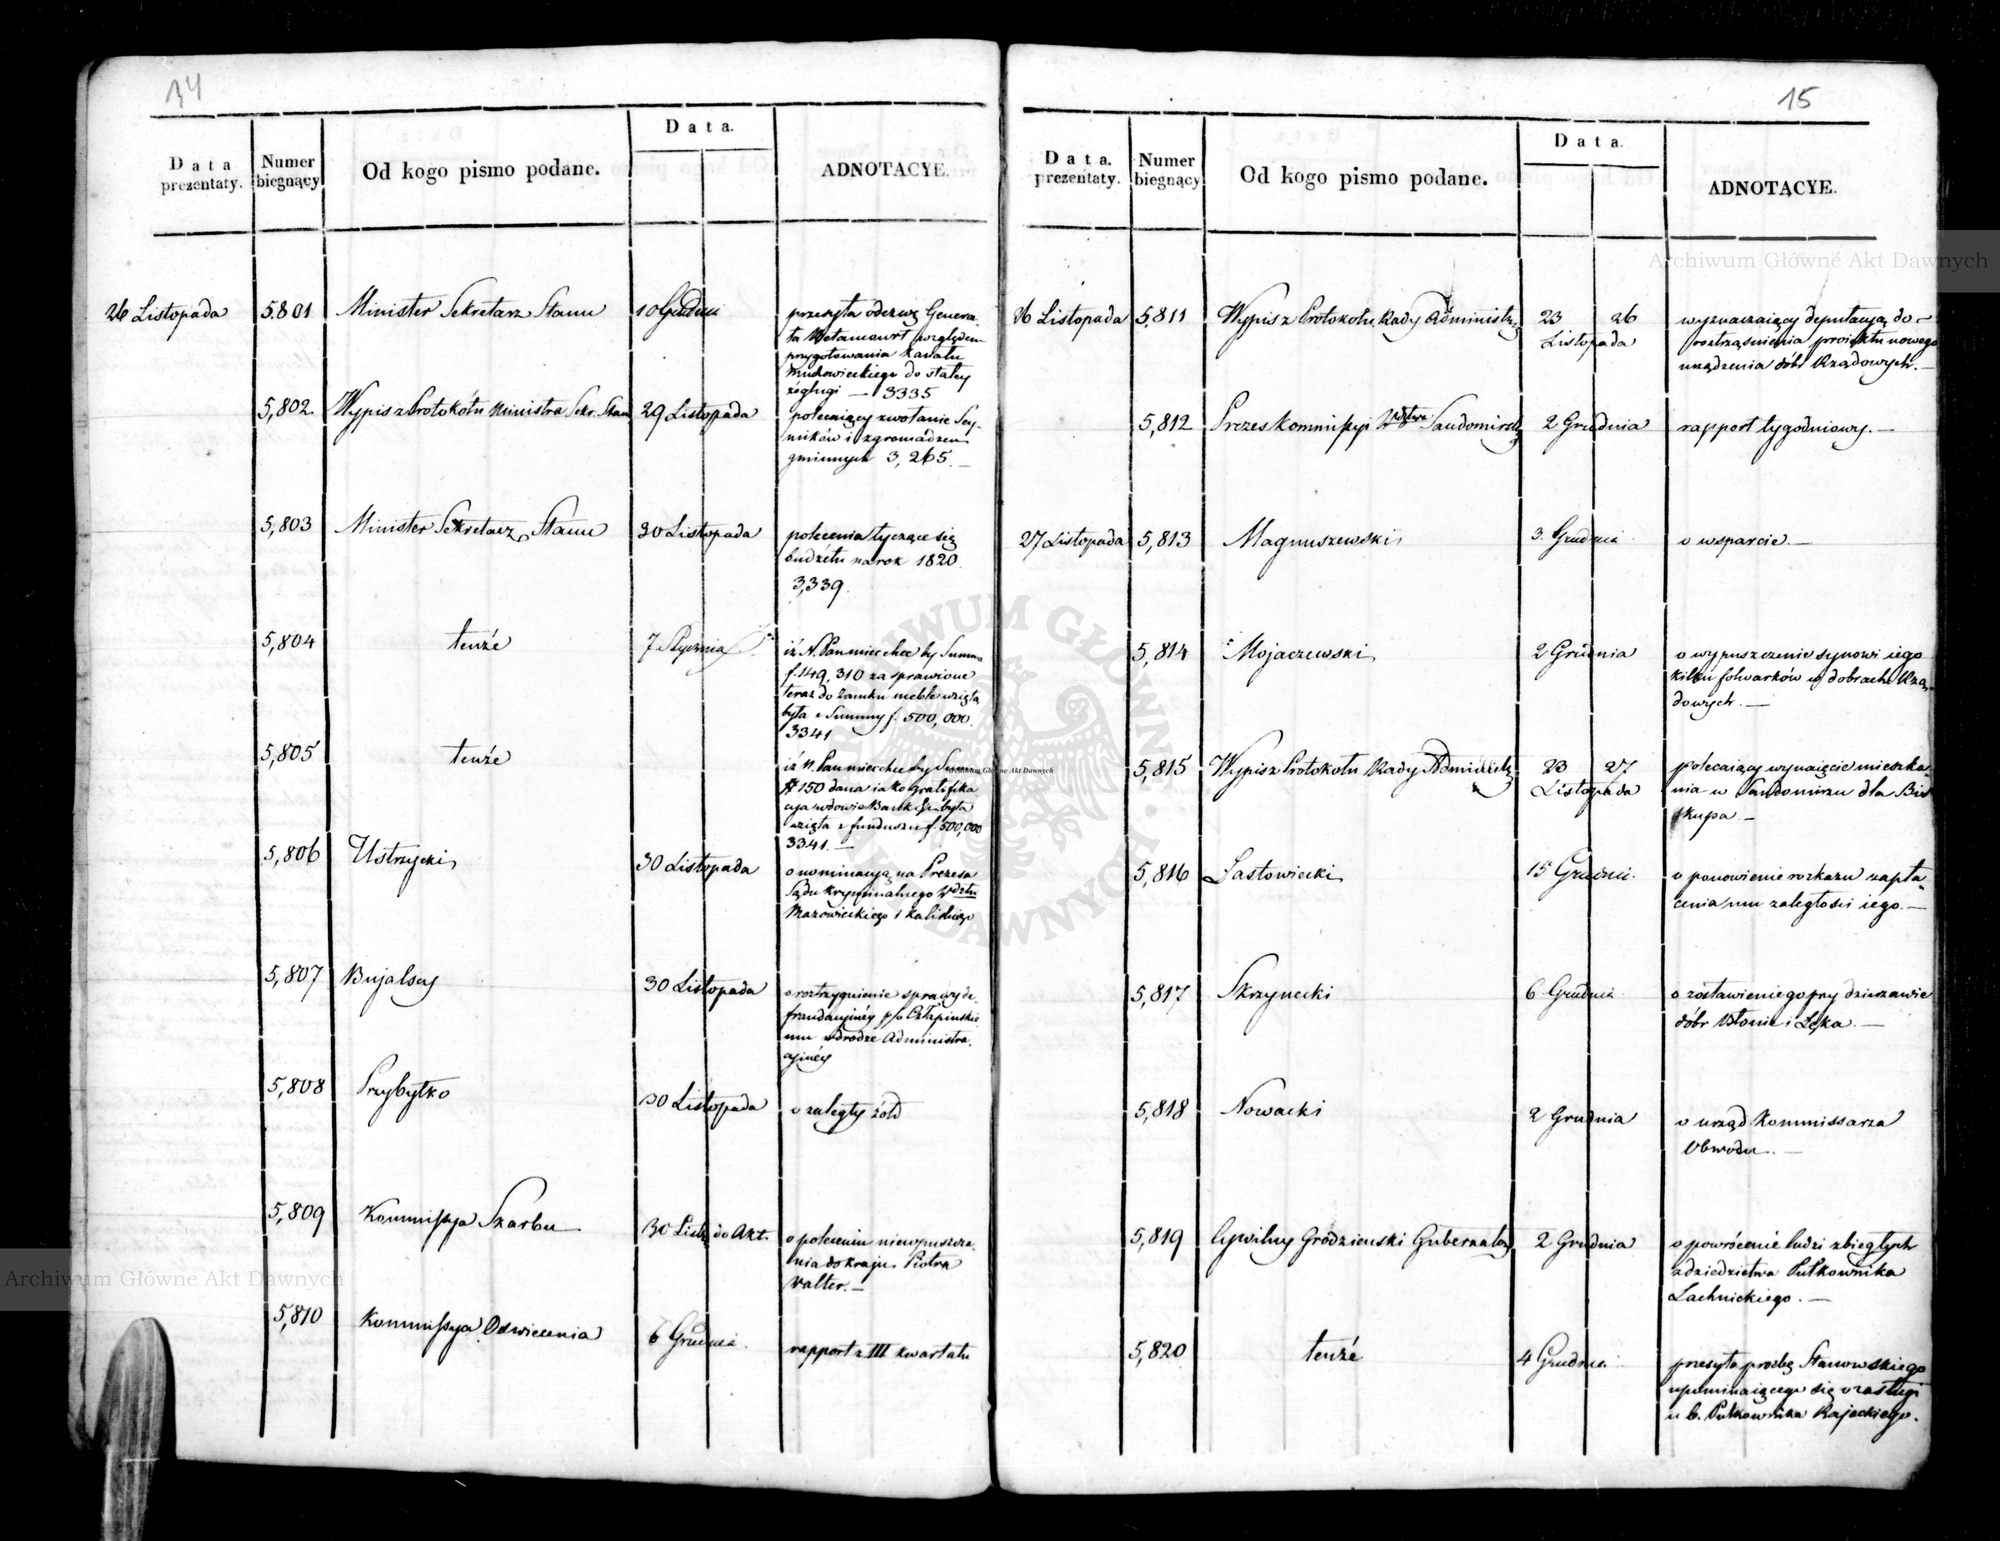 14
Data prezentaty.
Numer biegnący
Od kogo pismo podane.
Data.
ADNOTACYE.
26 Listopada
5.801
Minister Sekretarz Stanu
10 Grudnia
przesyła odezwę Genera-
ła względem
przygotowania Kanału
do stałey
żeglugi — 3335
5,802
Wypis z Protokółu Ministra Sekr. Stanu
29 Listopada
polecaiący zwołanie Sey-
mików i zgromadzeń
gminnych 3,265. —
5,803
Minister Sekretarz Stanu
30 Listopada
polecenia tyczące się
budżetu na rok 1820.
3,339.
5,804
tenże
7 Stycznia
iż N. Pan mieć chce by Summa
f. 149,310 za sprawione
teraz do Zamku meble wzięta
była z Summy f. 500,000.
3341
5,805
tenże
iż N. Pan mieć chce by Summa
# 150 dana iako Gratifika
cya wdowie była
wzięta z funduszu f. 500,000
3341. —
5,806
Ustrzycki
30 Listopada
o nominacyą na Prezesa
Sądu Kryminalnego Wdztw
Mazowieckiego i Kaliskiego
5,807
Bujalscy
30 Listopada
o roztrzygnienie sprawy de-
fraudacyinéy p/o Człapinskie
mu w drodze Administra-
cyinéy
5,808
Przybytko
30 Listopada
o zaległy żołd
5,809
Kommissya Skarbu
30 List. do Akt.
o poleceniu niewpuszcza-
nia do kraju Piotra
Valter. —
5,810
Kommissya Oświecenia
6 Grudnia.
rapport z III kwartału
15
Data. prezentaty.
Numer biegnący
Od kogo pismo podane.
Data.
ADNOTACYE.
26 Listopada
5,811
Wypis z Protokołu Rady Administr.
23 26
Listopada
wyznaczaiący deputacyą do —
roztrząśnienia proiektu nowego
urządzenia dóbr Rządowych. —
5,812
Prezes Kommissyi Wdztwa Sandomirsk.
2 Grudnia
rapport tygodniowy. —
27 Listopada
5,813
Magnuszewski
3. Grudnia
o wsparcie. —
5,814
Mojaczewski
2 Grudnia
o wypuszczenie synowi iego
kilku folwarków w dobrach Rzą-
dowych. —
5,815
Wypis z Protokołu Rady Administr.
23 27
Listopada
polecaiący wynaięcie mieszka-
nia w Sandomirzu dla Bis
kupa —
5,816
Lastowiecki
15 Grudnia.
o ponowienie rozkazu zapła-
cenia mu zaległości iego. —
5,817
Skrzynecki
6 Grudnia
o zostawienie go przy dzierzawie
dóbr Błonie i Łęka. —
5,818
Nowacki
2 Grudnia
o urząd Kommissarza
Obwodu. —
5,819
Cywilny Gródzienski Gubernator
2 Grudnia
o powrócenie ludzi zbiegłych
z dziedzictwa Pułkownika
Lachnickiego. —
5,820
tenże
4 Grudnia
przesyła prozbę Stanowskiego
upominaiącego się o zasługi
u b. Pułkownika Rajeckiego.
Archiwum Główne Akt Dawnych
Archiwum Główne Akt Dawnych
Archiwum Główne Akt Dawnych
ARCHIWUM GŁÓWNE AKT DAWNYCH